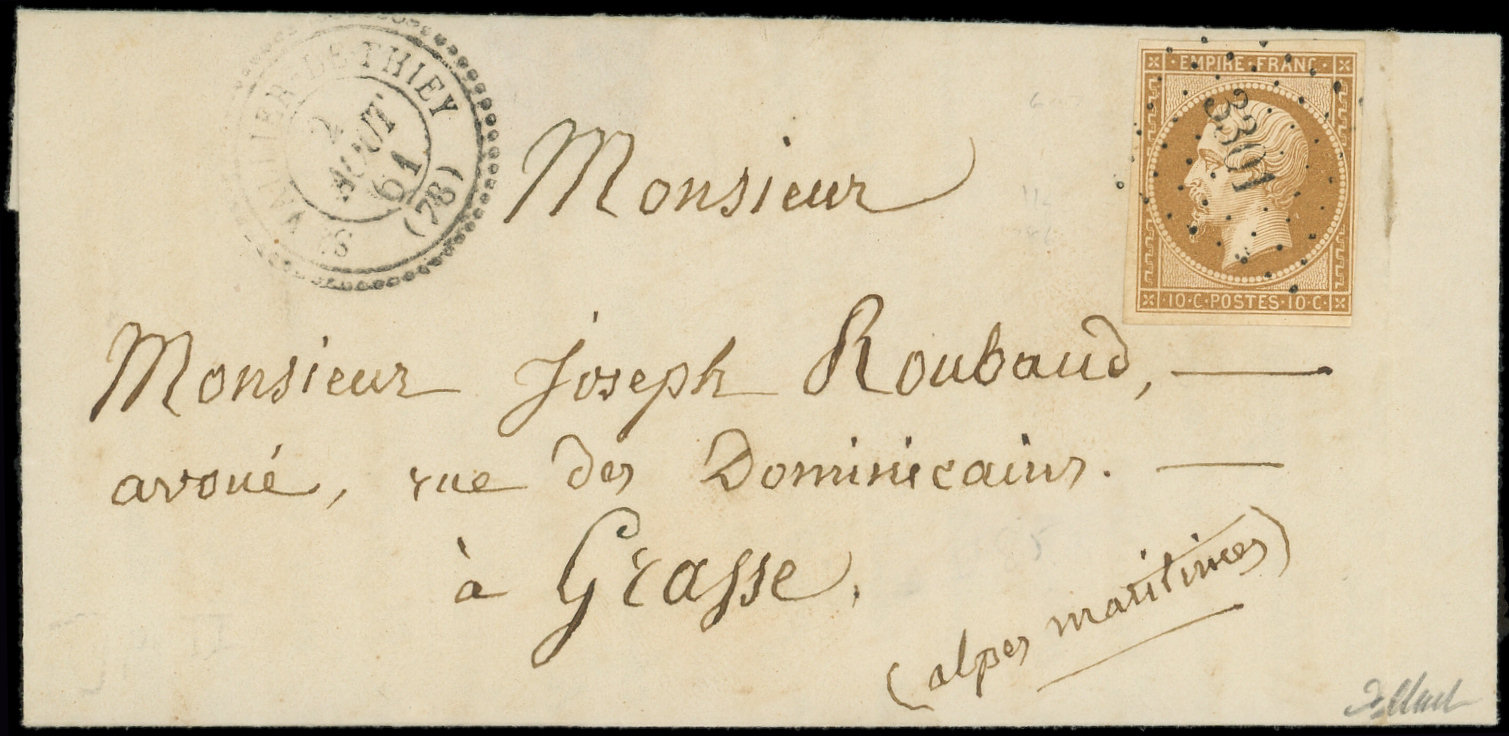 ST VALLIER-DE-THIEY
2
AOUT
61
(78)
EMPIRE·FRANC·
3301
10·C·POSTES·10·C·
Monsieur
Monsieur Joseph Roubaud,
avoué, rue des Dominicains.
à Grasse.
(alpes maritimes)